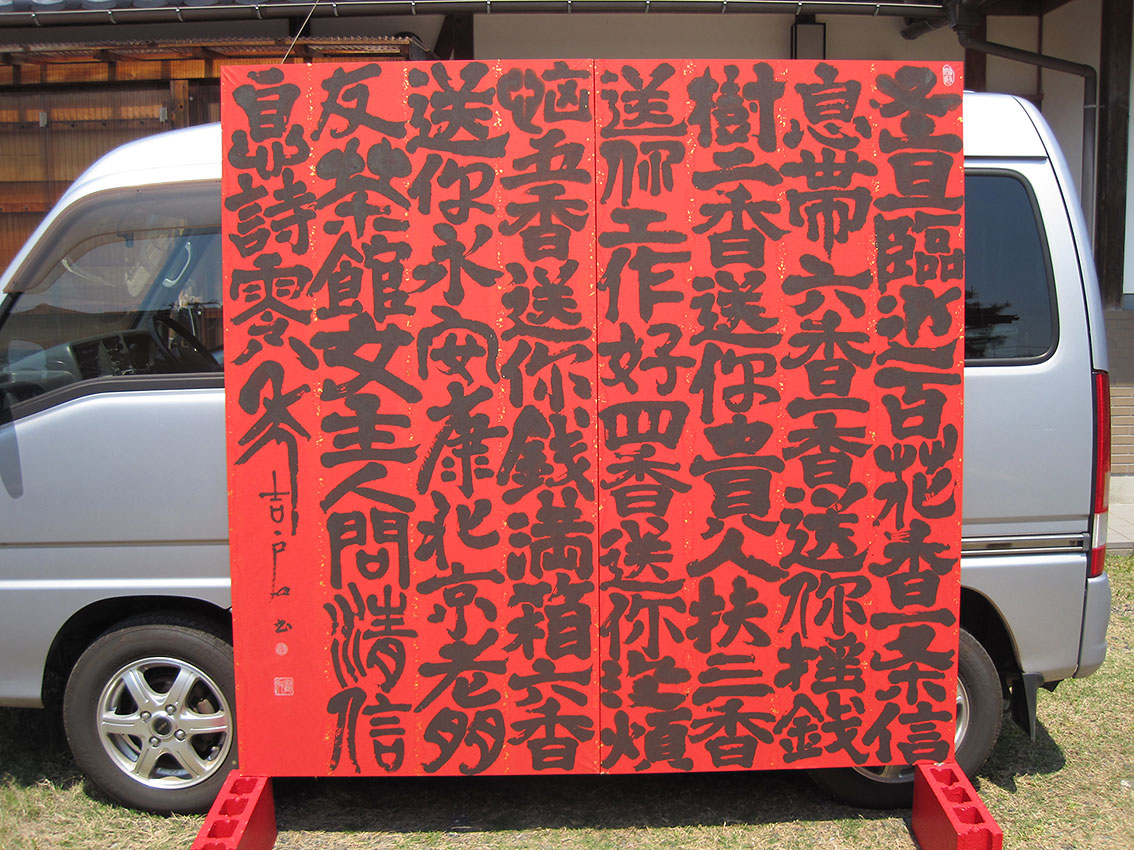 圣旦臨近百花香一条信
息帯六香一香送你摇銭
樹二香送你貴人扶三香
送你工作好四香送你没煩
悩五香送你銭満箱六香
送你永安康北京老朋
友茶館女主人問清信
息此詩零八